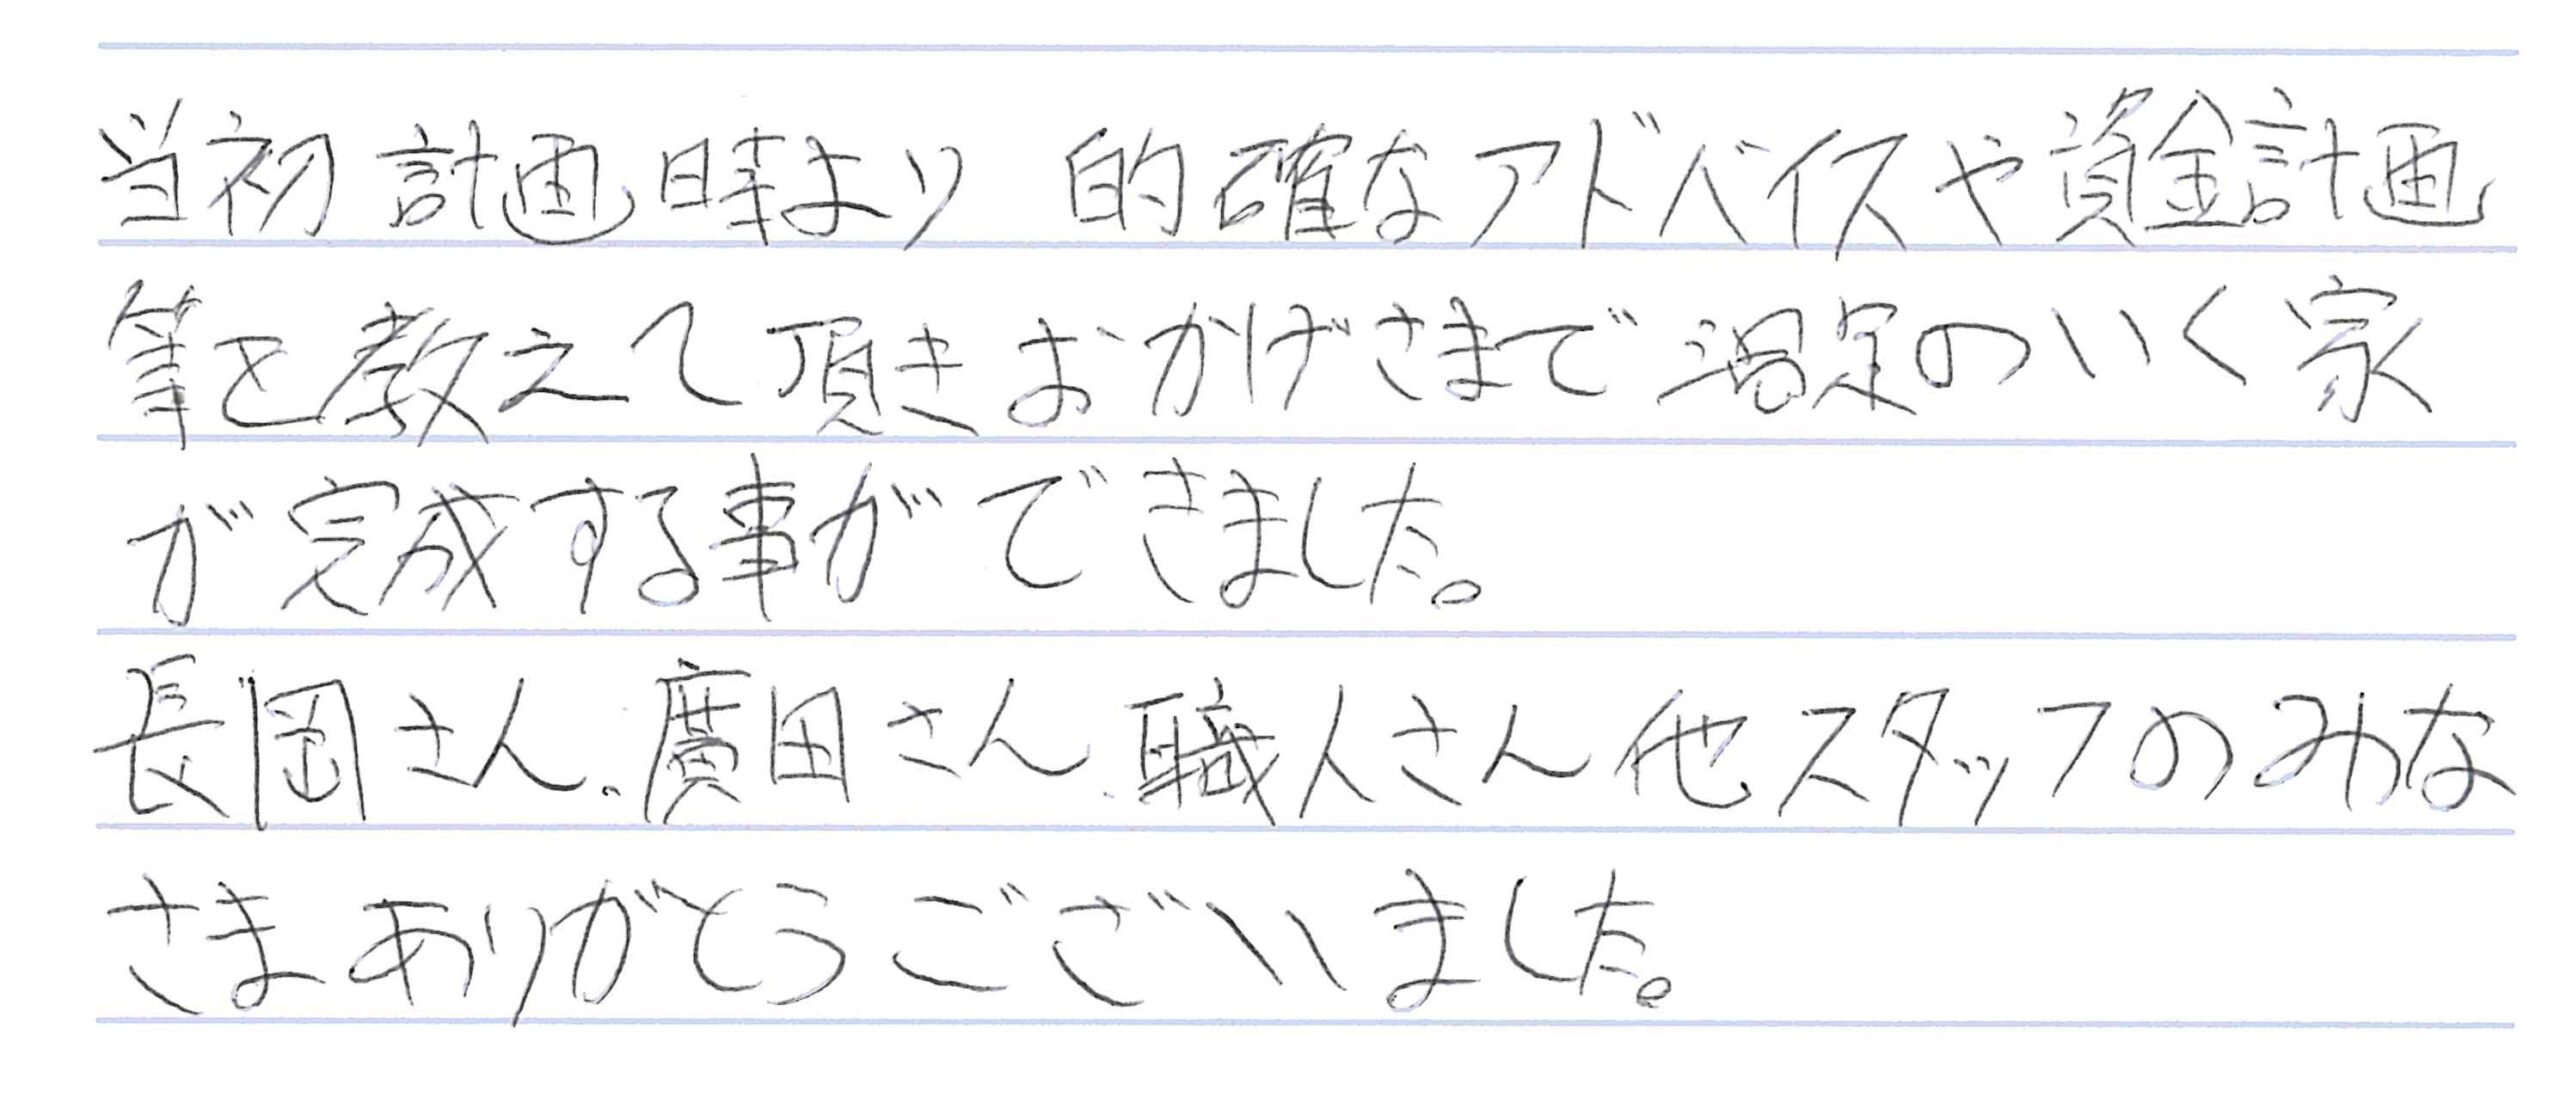 当初計画時より 的確なアドバイスや資金計画
等を教えて頂きおかげさまで満足のいく家
が完成する事ができました。
長岡さん、廣田さん、職人さん他スタッフのみな
さまありがとうございました。